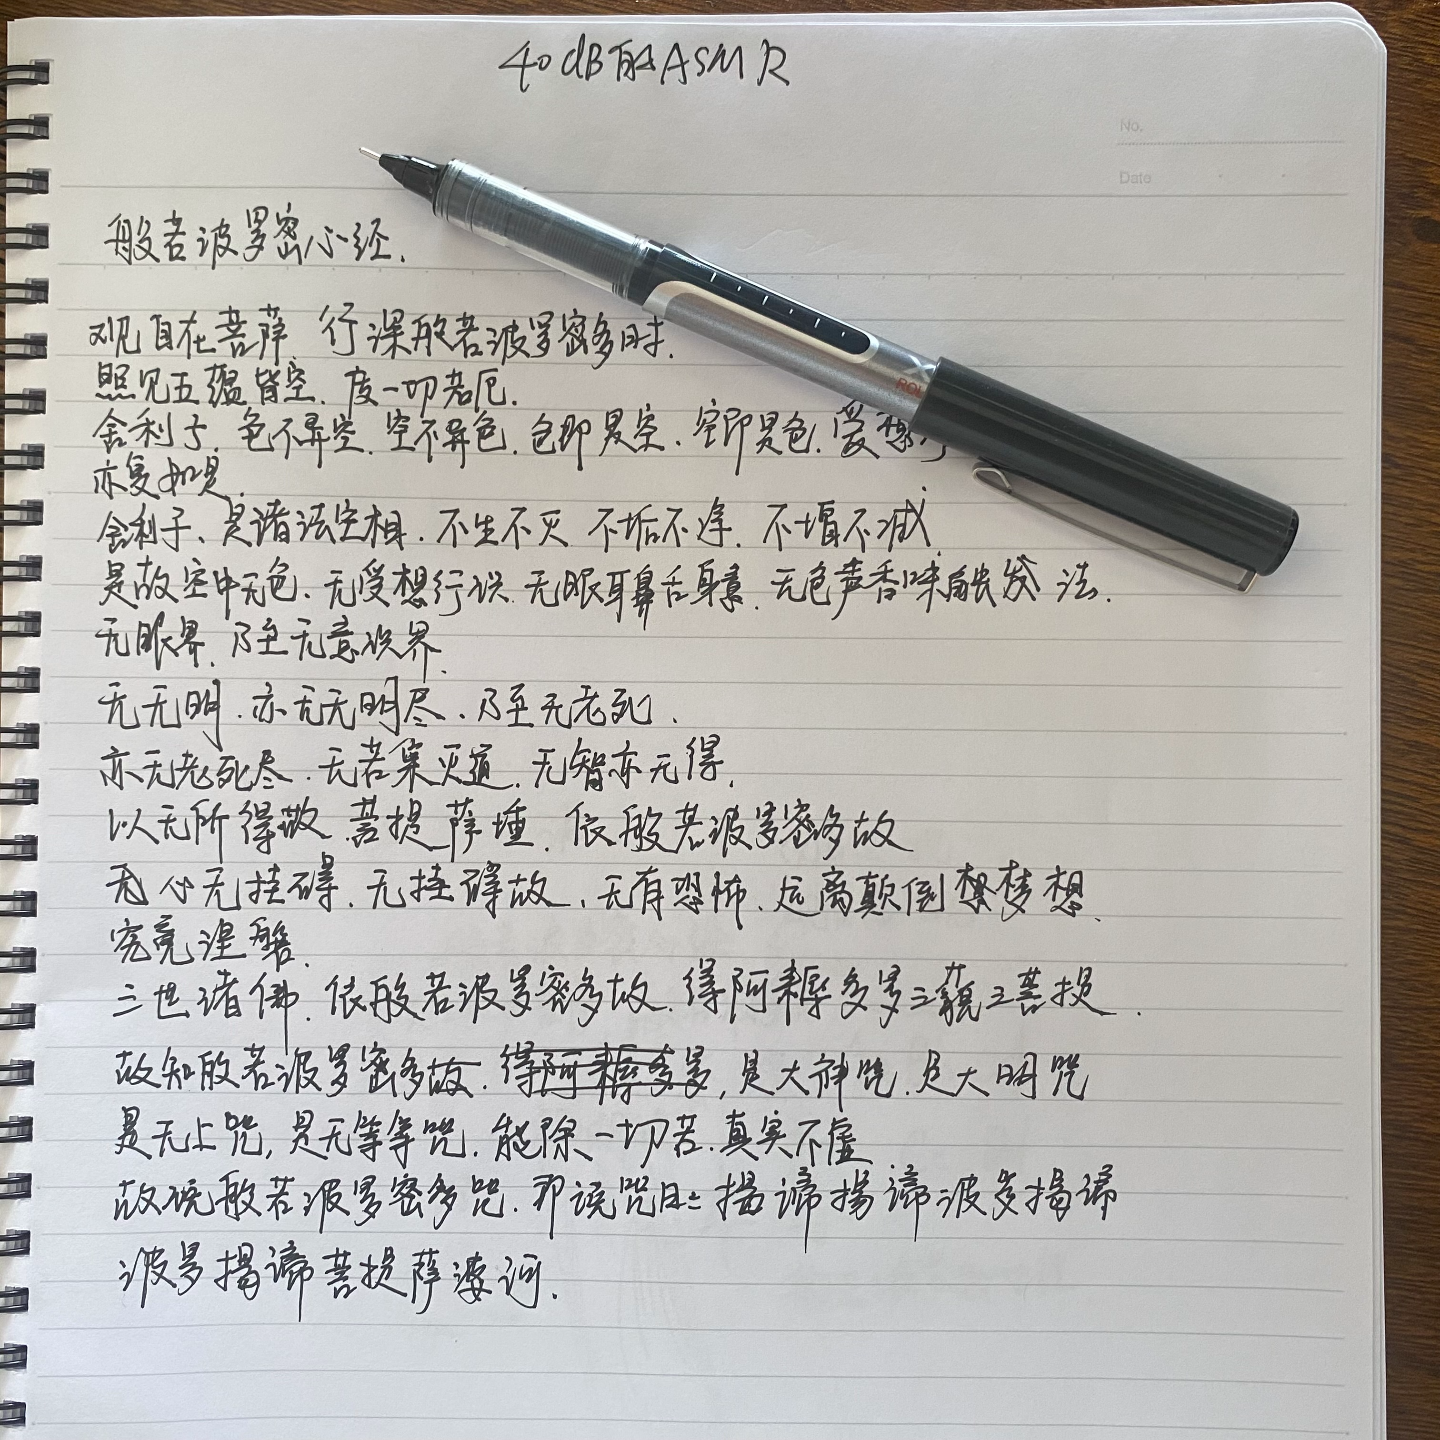 40dB的ASMR
No.
Date
般若波罗密心经.
观自在菩萨 行深般若波罗密多时.
照见五蕴皆空.度一切苦厄.
舍利子.色不异空.空不异色.色即是空.空即是色.受想
亦复如是.
舍利子、是诸法空相.不生不灭 不垢不净.不增不减.
是故空中无色.无受想行识.无眼耳鼻舌身意.无色声香味触发 法.
无眼界.乃至无意识界.
无无明.亦无无明尽.乃至无老死.
亦无老死尽.无苦集灭道.无智亦无得.
以无所得故 菩提萨埵.依般若波罗密多故
无 心无挂碍.无挂碍故.无有恐怖.远离颠倒想梦想.
究竟涅磐.
三世诸佛.依般若波罗密多故.得阿耨多罗三藐三菩提.
故知般若波罗密多故.得阿耨多罗,是大神咒.是大明咒
是无上咒,是无等等咒.能除一切苦.真实不虚
故说般若波罗密多咒.即说咒曰:揭谛揭谛波罗揭谛
波罗揭谛菩提萨婆诃.